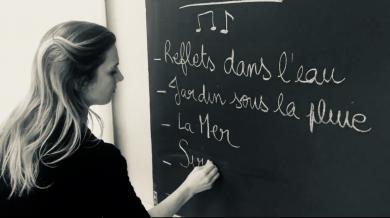 - Reflets dans l'eau
- Jardin sous la pluie
- La Mer
-